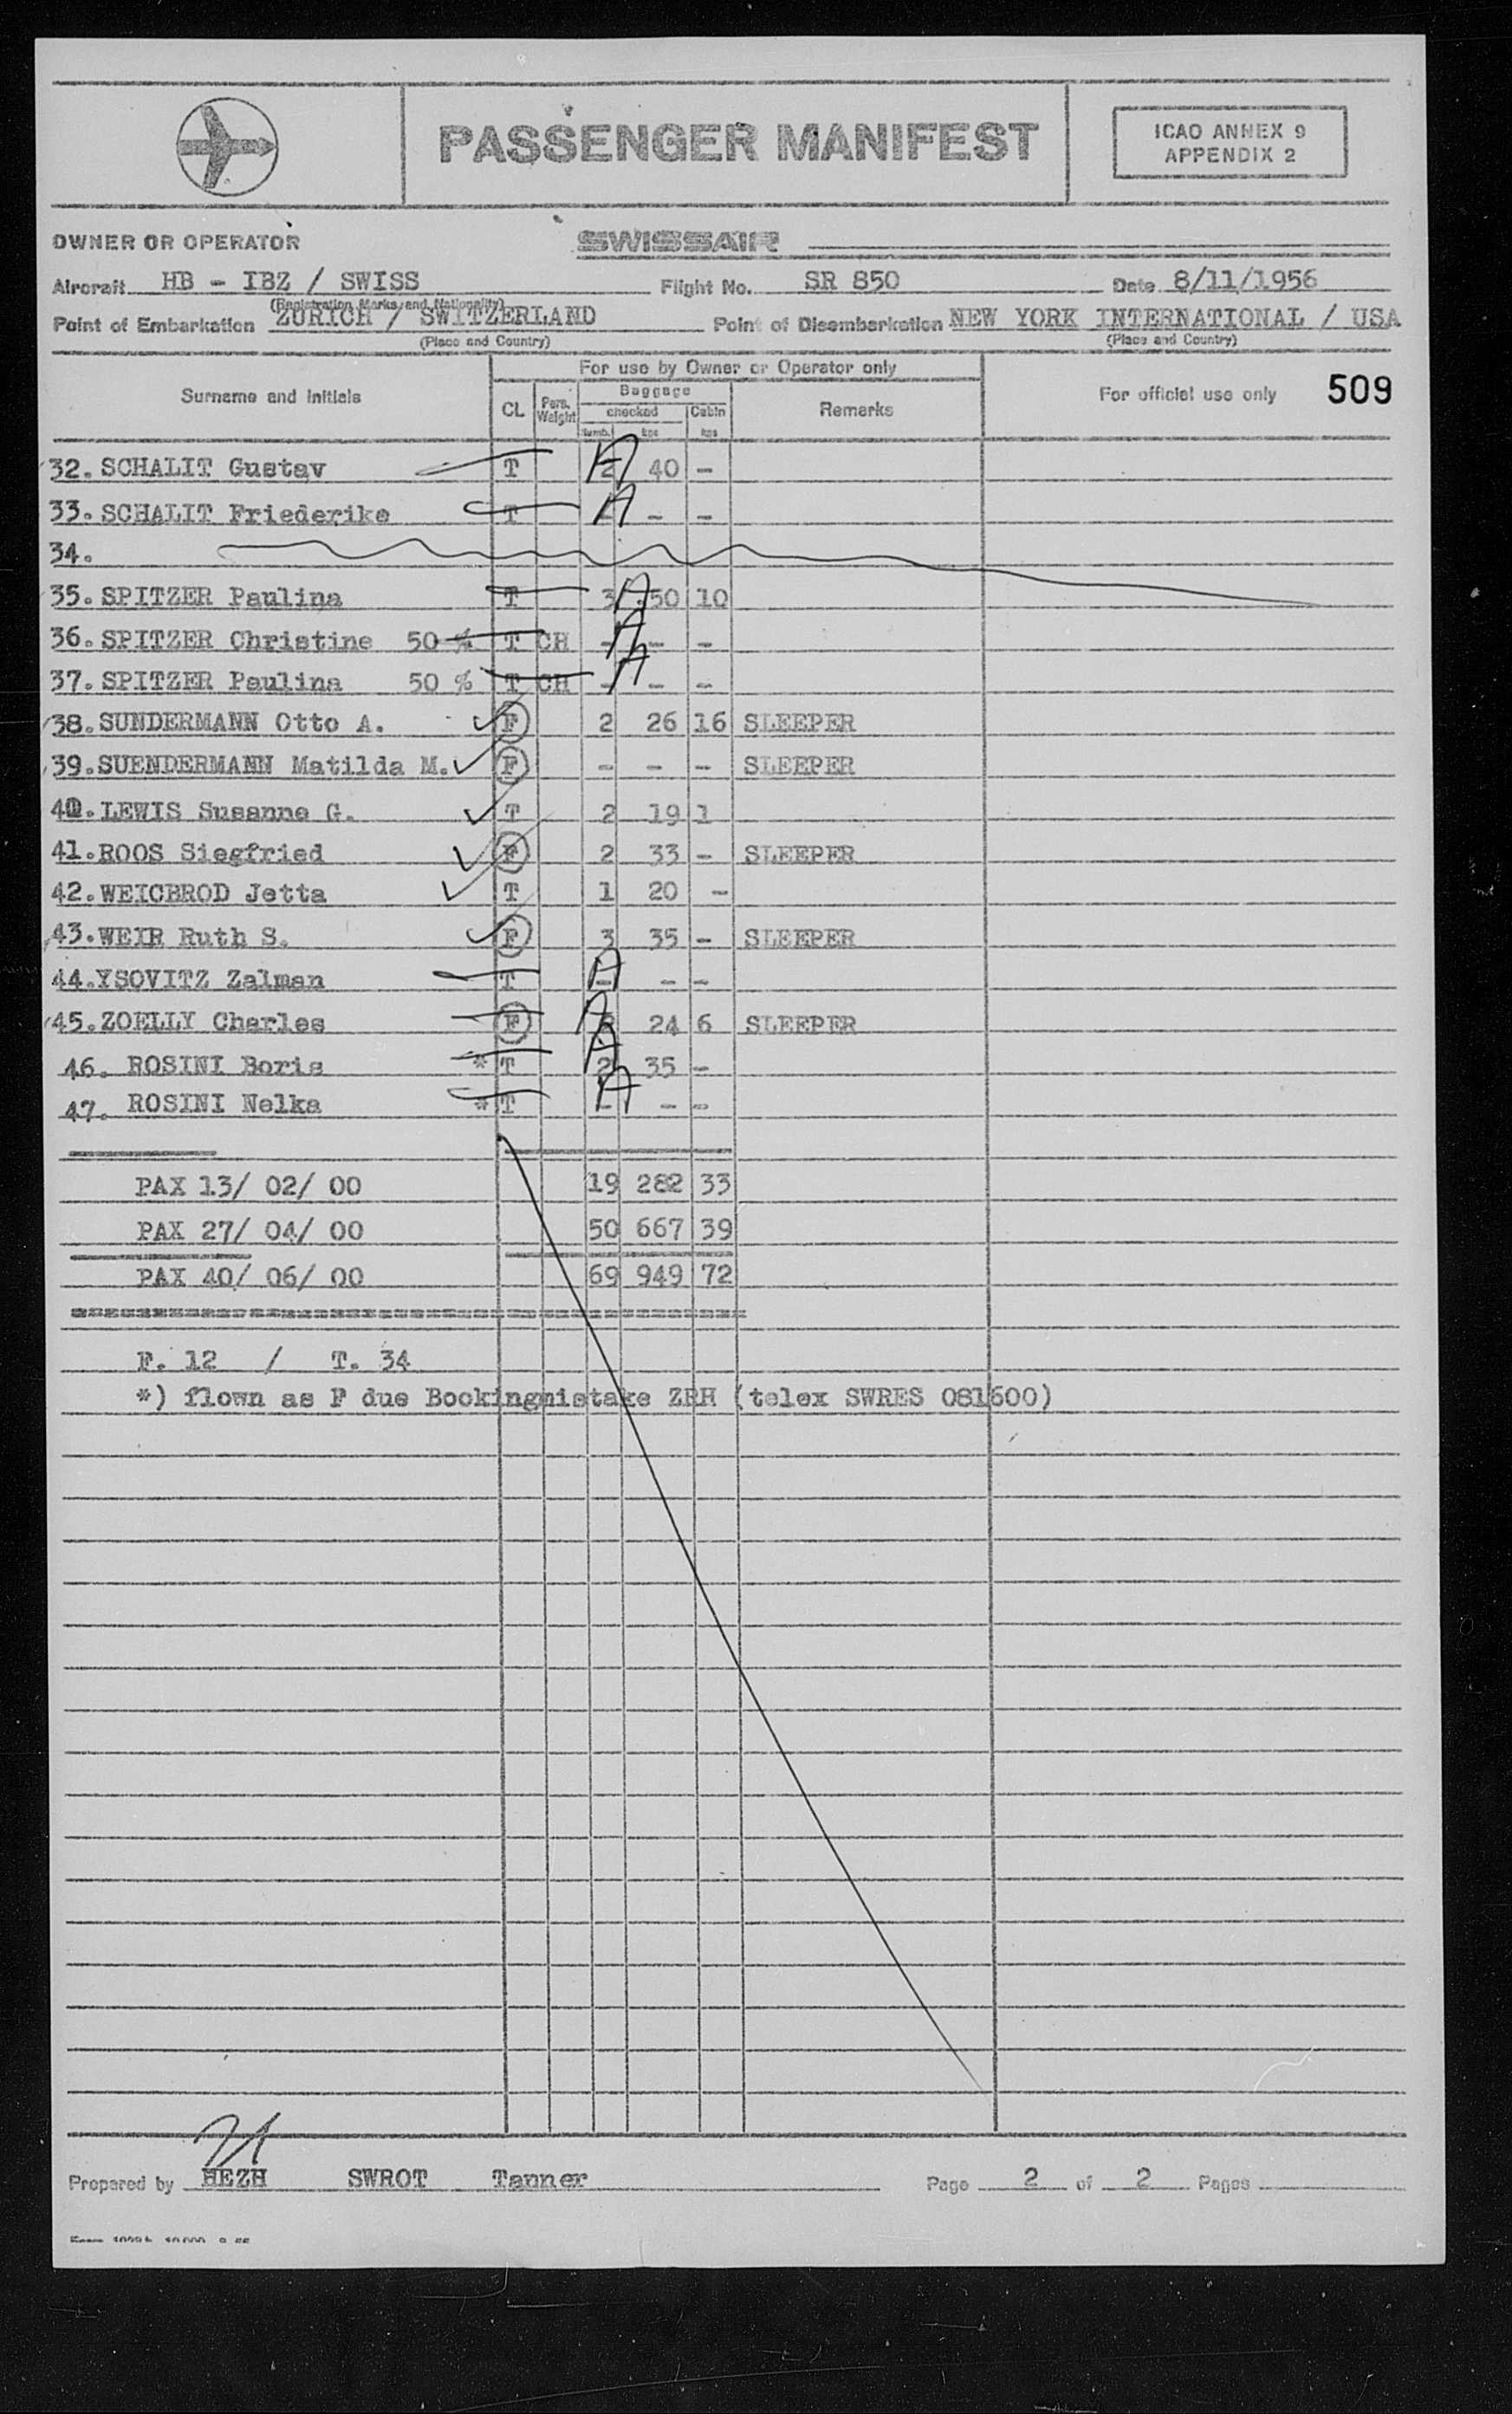 PASSENGER MANIFEST
ICAO ANNEX 9
APPENDIX 2
OWNER OR OPERATOR SWISSAIR
Aircraft HB - IBZ / SWISS Flight No. SR 850 Date 8/11/1956
(Registration Marks and Nationality)
Point of Embarkation ZURICH / SWITZERLAND Point of Disembarkation NEW YORK INTERNATIONAL / USA
(Place and Country) (Place and Country)
For use by Owner or Operator only
Surname and Initials CL Pers. Weight Baggage checked Cabin Remarks For official use only 509
numb. kgs kgs
32. SCHALIT Gustav T 2 A 40 -
33. SCHALIT Friederike T - A - -
34.
35. SPITZER Paulina T 3 A 50 10
36. SPITZER Christine 50 % T CH - A - -
37. SPITZER Paulina 50 % T CH - A - -
38. SUNDERMANN Otto A. F 2 26 16 SLEEPER
39. SUENDERMANN Matilda M. F - - - SLEEPER
40. LEWIS Susanne G. T 2 19 1
41. ROOS Siegfried F 2 33 - SLEEPER
42. WEICBROD Jetta T 1 20 -
43. WEIR Ruth S. F 3 35 - SLEEPER
44. YSOVITZ Zalman T - A - -
45. ZOELLY Charles F A 24 6 SLEEPER
46. ROSINI Boris * T 2 A 35 -
47. ROSINI Nelka * T - A - -
PAX 13/ 02/ 00 19 282 33
PAX 27/ 04/ 00 50 667 39
PAX 40/ 06/ 00 69 949 72
F. 12 / T. 34
*) flown as F due Bookingmistake ZRH (telex SWRES 081600)
Prepared by HEZH SWROT Tanner Page 2 of 2 Pages